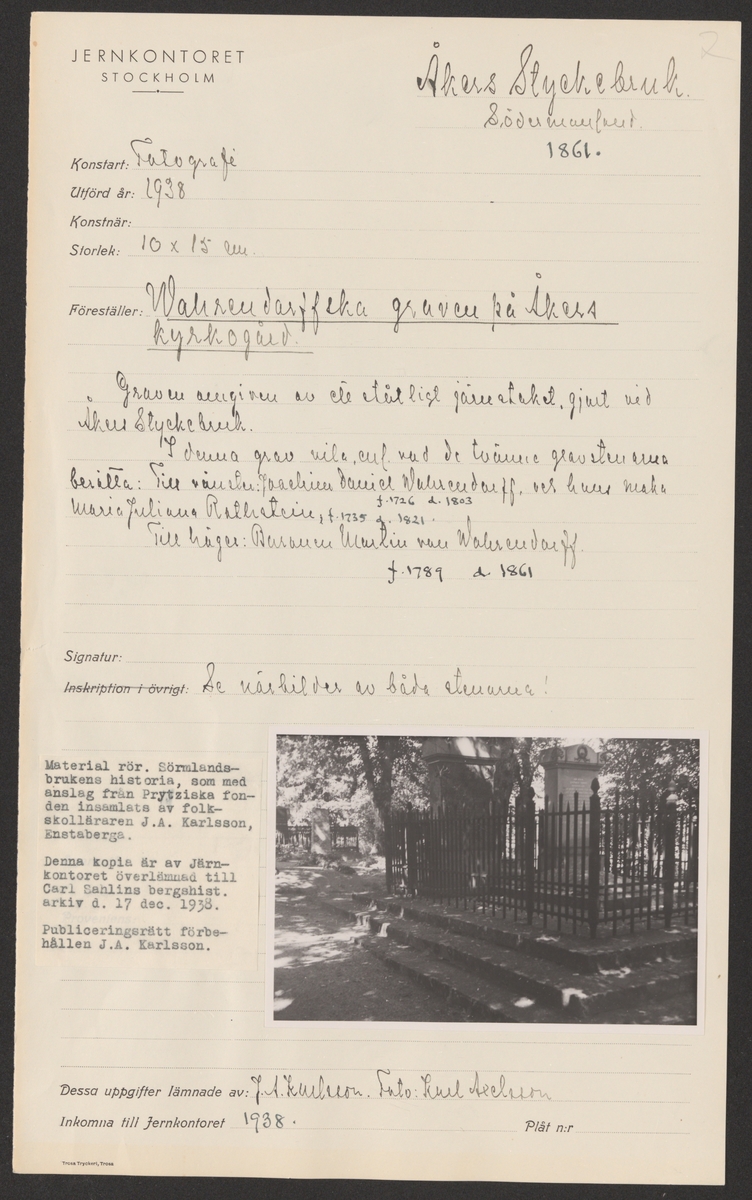 2
JERNKONTORET
STOCKHOLM
Åkers Styckebruk.
Södermanland.
1861.
Konstart: Fotografi
Utförd år: 1938
Konstnär:
Storlek: 10 x 15 cm.
Föreställer: Wahrendorffska graven på Åkers
kyrkogård.
Graven omgiven av ett ståtligt järnstaket, gjort vid
Åkers Styckebruk.
I denna grav vila, enl. vad de tvänne gravstenarna
berätta: Till vänster: Joachim Daniel Wahrendorff, och hans maka
f. 1726 d. 1803
Maria Juliana Rothstein, f. 1735 d. 1821.
Till höger: Baronen Martin von Wahrendorff.
f. 1789 d. 1861
Signatur:
Inskription i övrigt: Se närbilder av båda stenarna!
Material rör. Sörmlands-
brukens historia, som med
anslag från Prytziska fon-
den insamlats av folk-
skolläraren J.A. Karlsson,
Enstaberga.
Denna kopia är av Järn-
kontoret överlämnad till
Carl Sahlins bergshist.
arkiv d. 17 dec. 1938.
Publiceringsrätt förbe-
hållen J.A. Karlsson.
Dessa uppgifter lämnade av: J.A. Karlsson. Foto: Karl Axelsson
Inkomna till Jernkontoret 1938.
Plåt n:r
Trosa Tryckeri, Trosa